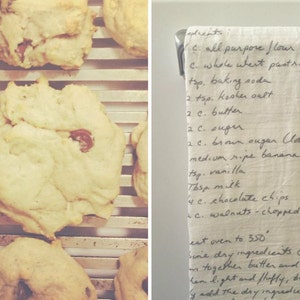 c. all purpose flour
c. whole wheat pastry
tsp. baking soda
tsp. kosher salt
c. butter
c. sugar
c. brown sugar
medium ripe banana
tsp. vanilla
Tbsp milk
c. chocolate chips
c. walnuts - chopped
oven to 350°
dry ingredients
together butter and
light and fluffy,
add the dry ingredients